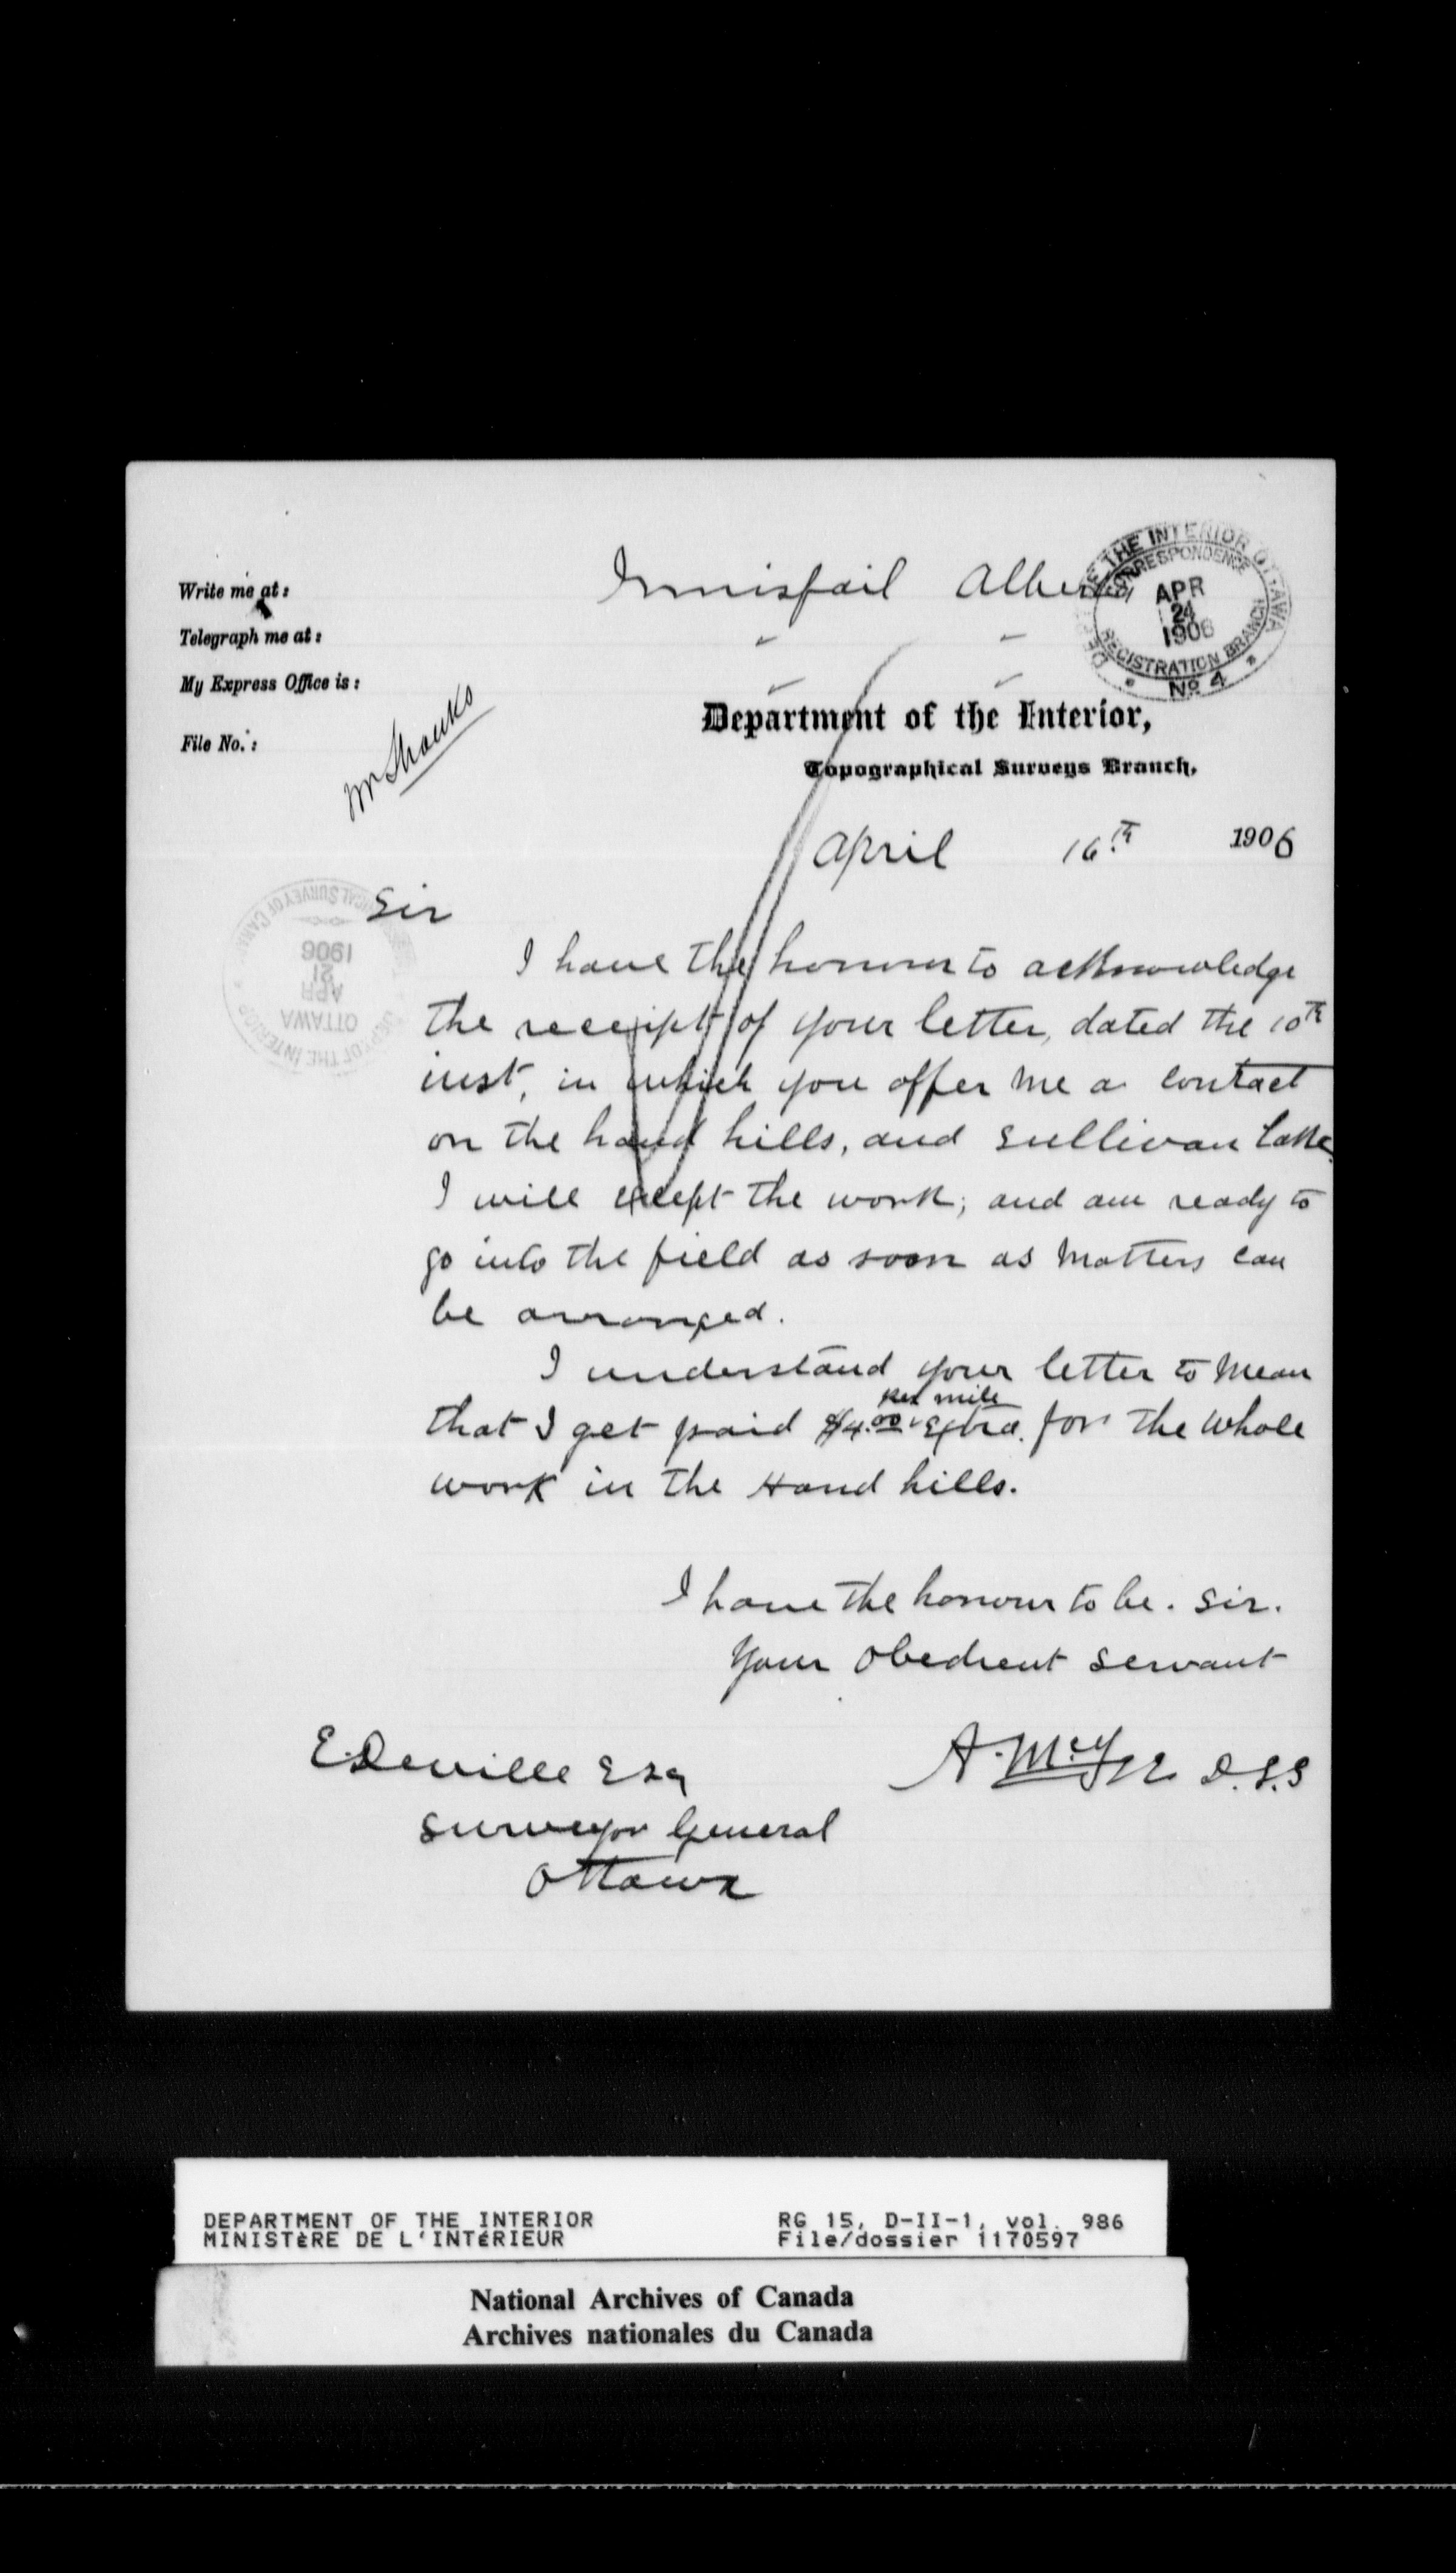 Write me at: Innisfail Alberta
Telegraph me at: " "
My Express Office is: " "
File No.:
Mr Shanks
DEPT OF THE INTERIOR OTTAWA
CORRESPONDENCE
APR
24
1906
REGISTRATION BRANCH
No 4
Department of the Interior,
Topographical Surveys Branch,
April 16th 1906
1906
21
APR
OTTAWA
DEPT OF THE INTERIOR
Sir
I have the honour to acknowledge
the receipt of your letter, dated the 10th
inst, in which you offer me a contact
on the hand hills, and Sullivan Lake.
I will except the work; and am ready to
go into the field as soon as matters can
be arranged.
I understand your letter to mean
per mile
that I get paid $4.00 extra for the whole
work in the Hand hills.
I have the honour to be. Sir.
Your obedient servant
E Deville Esq
A. McF D.L.S
Surveyor General
Ottawa
DEPARTMENT OF THE INTERIOR
MINISTÈRE DE L'INTÉRIEUR
RG 15, D-II-1, vol. 986
File/dossier 1170597
National Archives of Canada
Archives nationales du Canada